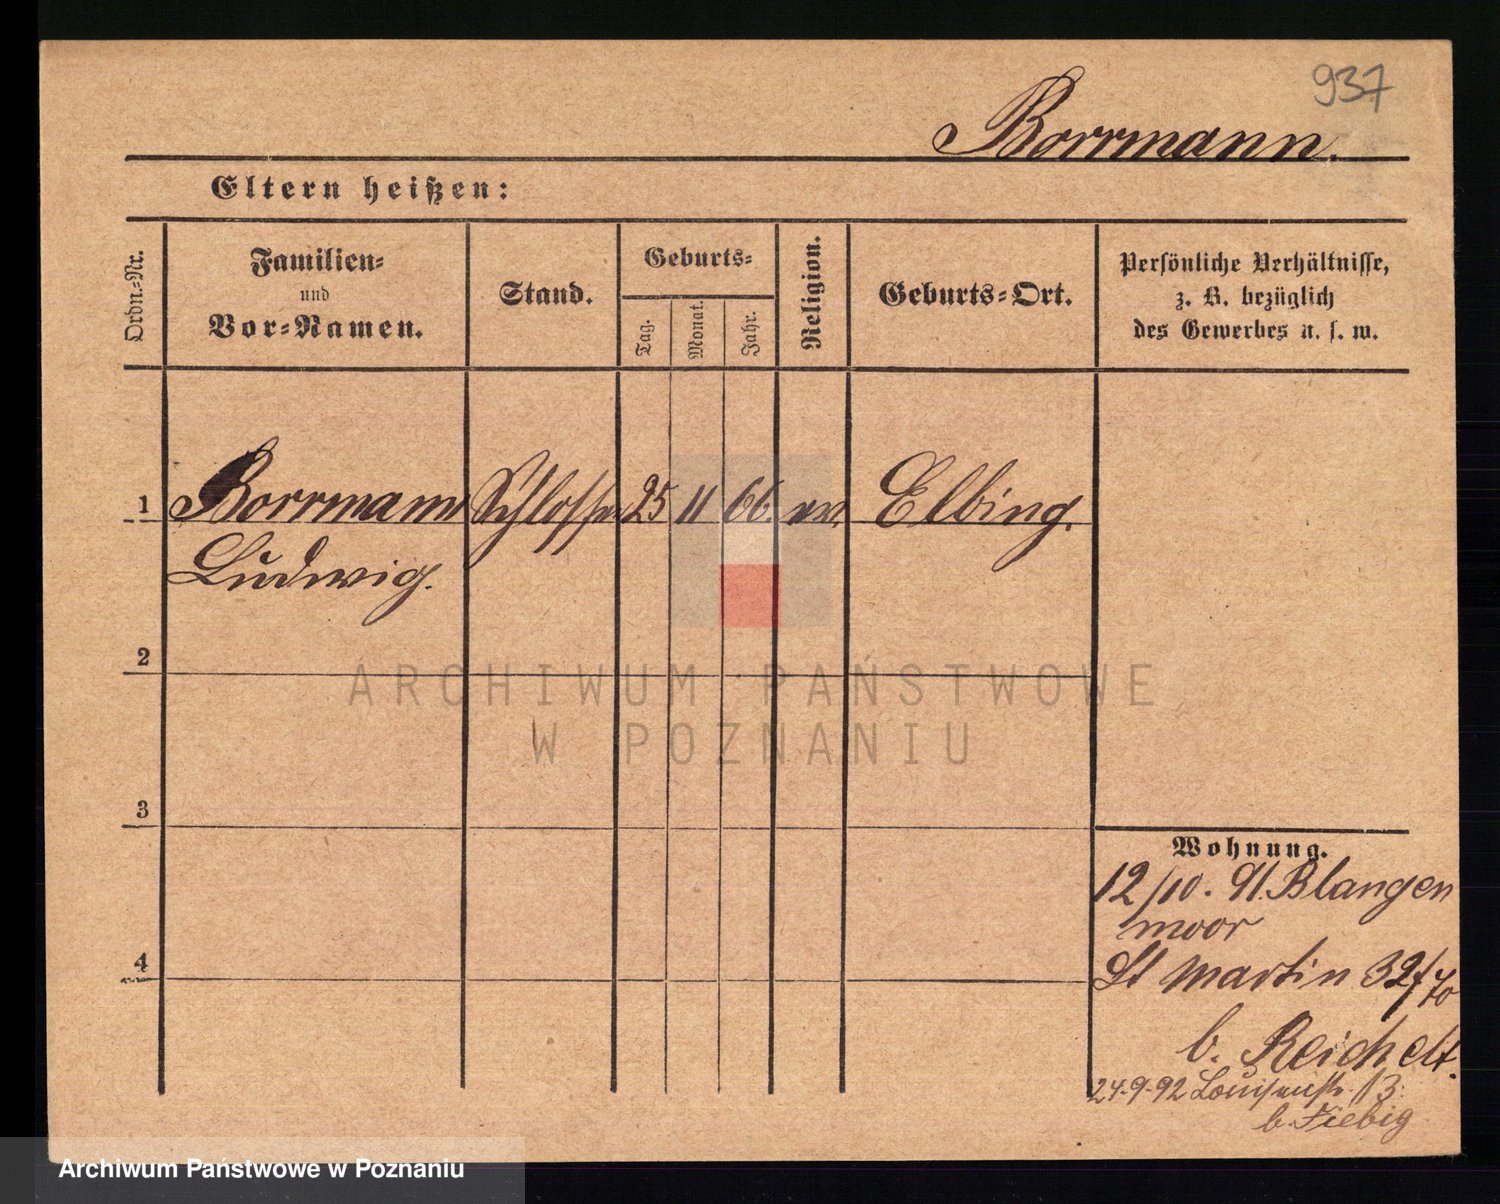 937
Borrmann.
Eltern heißen:
Ordn.-Nr.
Familien-
und
Vor-Namen.
Stand.
Geburts-
Tag.
Monat.
Jahr.
Religion.
Geburts-Ort.
Persönliche Verhältnisse,
z. B. bezüglich
des Gewerbes u. s. w.
1 Borrmann Schlosser 25 11 66. ev. Elbing.
Ludwig.
2
3
4
Wohnung.
12/10. 91. Blangen
moor
St Martin 32/40
b. Reichelt.
24.9.92 Louisenstr. 13.
b. Fiebig
ARCHIWUM PAŃSTWOWE
W POZNANIU
Archiwum Państwowe w Poznaniu